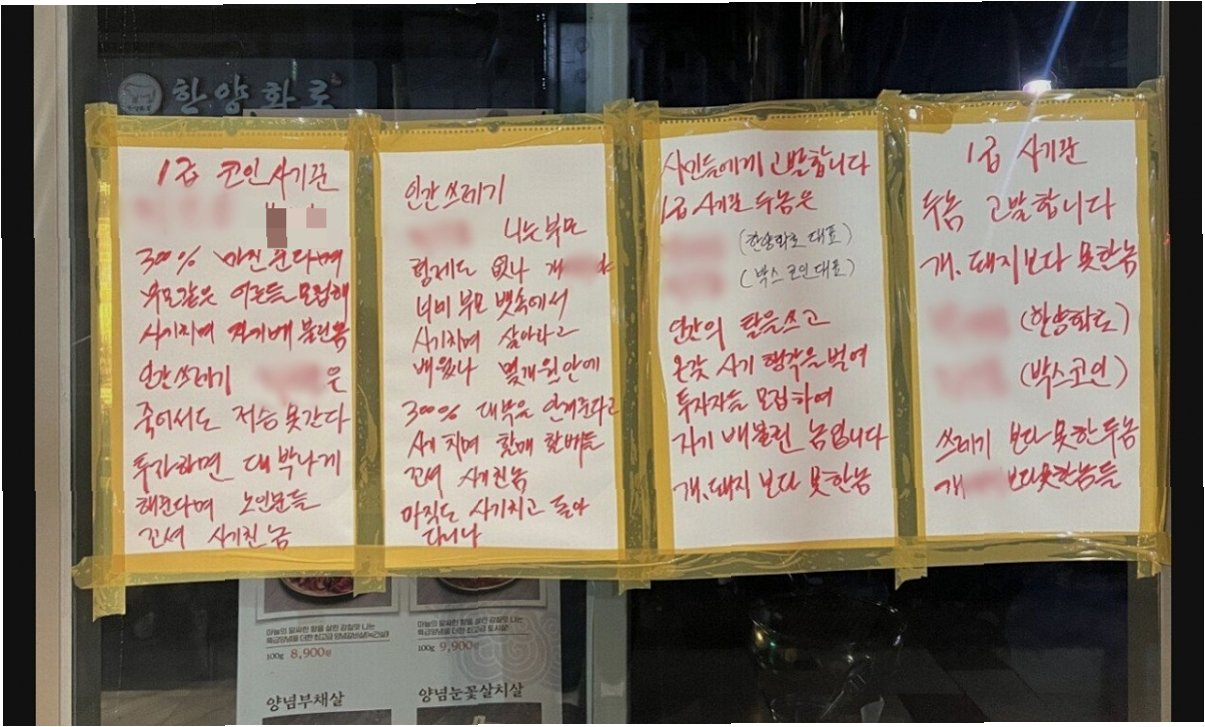 한양화로
1급 코인사기꾼
300% 마진 준다며
부모같은 어르들 모집해
사기치며 자기배 불린놈
인간쓰레기 은
죽어서도 저승 못간다
투자하면 대박나게
해준다며 노인분들
꼬셔 사기친놈
인간쓰레기
나는 부모
형제도 없나 개
너미 부모 뱃속에서
사기치며 살아라고
배웠나 몇개월안에
300% 대박을 안겨준다고
사기치며 할매 할배들
꼬셔 사기친놈
아직도 사기치고 돌아
다니나
시민들에게 고발합니다
1급 사기꾼 두놈은
(한양화로 대표)
(박스코인대표)
인간의 탈을쓰고
온갖 사기 행각을 벌여
투자자들 모집하여
자기 배불린 놈입니다
개.돼지 보다 못한놈
1급 사기꾼
두놈 고발합니다
개.돼지보다 못한놈
(한양화로)
(박스코인)
쓰레기 보다 못한 두놈
개 보다못한놈들
마늘의 알싸한 향을 살린 감칠맛 나는
특급양념을 더한 최고급
100g 8,900원
마늘의 알싸한 향을 살린 감칠맛 나는
특급양념을 더한 최고급 토시살!
100g 9,900원
양념부채살
양념눈꽃살치살